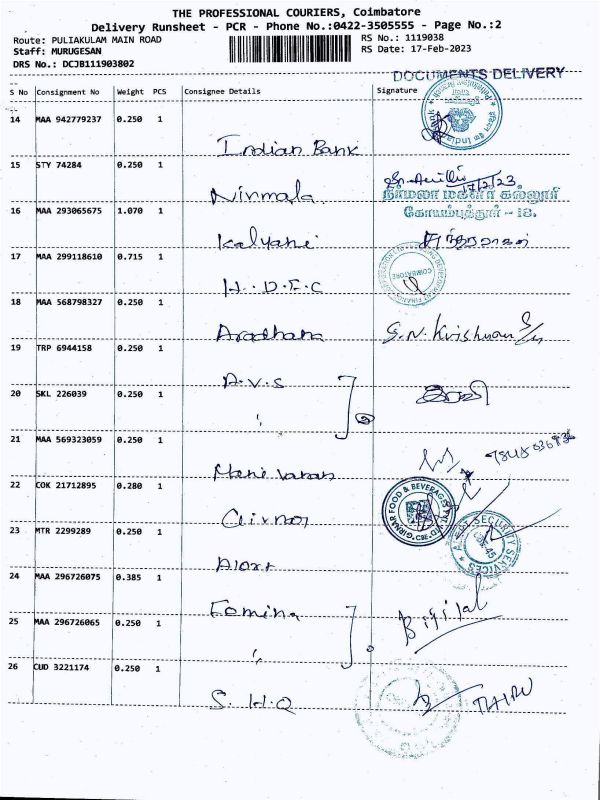 THE PROFESSIONAL COURIERS, Coimbatore
Delivery Runsheet - PCR - Phone No.:0422-3505555 - Page No.:2
Route: PULIAKULAM MAIN ROAD
Staff: MURUGESAN
DRS No.: DCJB111903802
RS No.: 1119038
RS Date: 17-Feb-2023
DOCUMENTS DELIVERY
S No Consignment No Weight PCS Consignee Details Signature
14 MAA 942779237 0.250 1
Indian Bank
15 STY 74284 0.250 1
17/2/23
Nirmala
நிர்மலா மகளிர் கல்லூரி
16 MAA 293065675 1.070 1
கோயம்புத்தூர் – 18.
Kalyani
17 MAA 299118610 0.715 1
COIMBATORE
H.D.F.C
18 MAA 568798327 0.250 1
Aradhana S.N. Krishnan
19 TRP 6944158 0.250 1
A.V.S
20 SKL 226039 0.250 1
21 MAA 569323059 0.250 1
Mani varan
22 COK 21712895 0.280 1
GIRNAR FOOD & BEVERAGES PVT. LTD. CBE
Girnar
23 MTR 2299289 0.250 1
ALERT SECURITY SERVICES CBE-45
Alert
24 MAA 296726075 0.385 1
Femina
25 MAA 296726065 0.250 1
26 CUD 3221174 0.250 1
S.H.Q THIRU